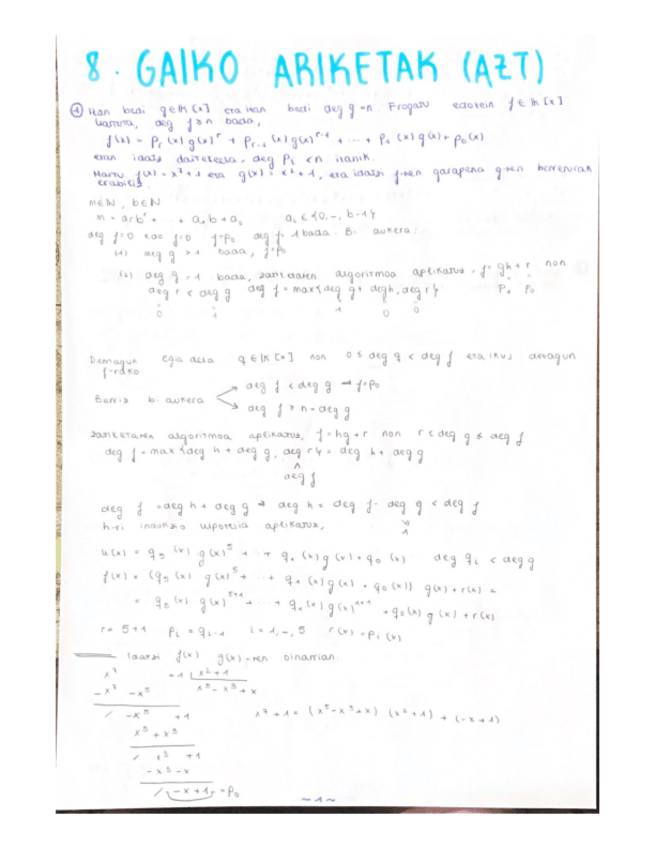 8. GAIKO ARIKETAK (AZT)
① Izan bedi g∈K[x] eta izan bedi deg g=n. Frogatu edozein f∈K[x]
hartuta, deg f≥n bada,
f(x) = Pr(x)g(x)^r + Pr-1(x)g(x)^r-1 + ... + P1(x)g(x) + p0(x)
eran idatzi daitekeela, deg Pi < n izanik.
Hartu f(x) = x^7+1 eta g(x) = x^2+1, eta idatzi f-ren garapena g-ren berreturak
erabiliz.
m∈N, b∈N
m = arb^r + ... + a1b + a0 ai∈{0,..., b-1}
deg f=0 edo f=0 f=p0 deg f=1 bada. Bi aukera:
(1) deg g > 1 bada, f=p0
(2) deg g = 1 bada, zatiketaren algoritmoa aplikatuz, f = gh + r non
deg r < deg g deg f = max{deg g + deg h, deg r} P1 P0
0 1 1 0 0
Demagun egia dela q∈K[x] non 0≤deg q < deg f eta ikus dezagun
f-rako
deg f < deg g → f=p0
Berriz bi aukera
deg f ≥ n = deg g
zatiketaren algoritmoa aplikatuz, f = hg + r non r < deg g ≤ deg f
deg f = max{deg h + deg g, deg r} = deg h + deg g
deg f
deg f = deg h + deg g → deg h = deg f - deg g < deg f
h-ri indukzio hipotesia aplikatuz,
h(x) = qs(x) g(x)^s + ... + q1(x)g(x) + q0(x) deg qi < deg g
f(x) = (qs(x) g(x)^s + ... + q1(x)g(x) + q0(x)) g(x) + r(x) =
= qs(x) g(x)^s+1 + ... + q1(x)g(x)^1+1 + q0(x)g(x) + r(x)
r = s+1 Pi = qi-1 i = 1,..,s r(x) = pi(x)
Idatzi f(x) g(x)-ren oinarrian.
x^7 +1 | x^2+1
-x^7 -x^5 x^5 - x^3 + x
/ -x^5 +1 x^7+1 = (x^5-x^3+x) (x^2+1) + (-x+1)
x^5 + x^3
/ x^3 +1
-x^3 - x
/ -x+1 = P0
~1~